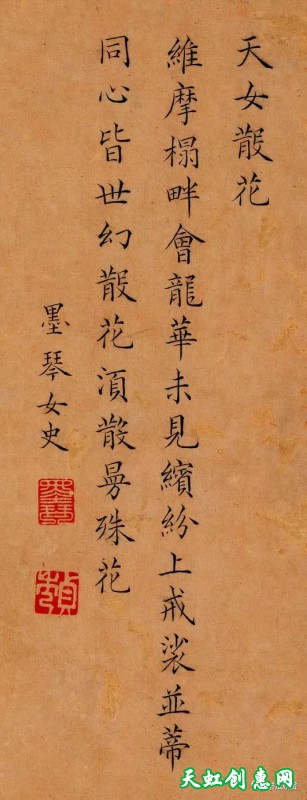 天女散花
維摩榻畔會龍華未見繽紛上戒裟並蒂
同心皆世幻散花湏散曼殊花
墨琴女史
墨琴
天虹创惠网